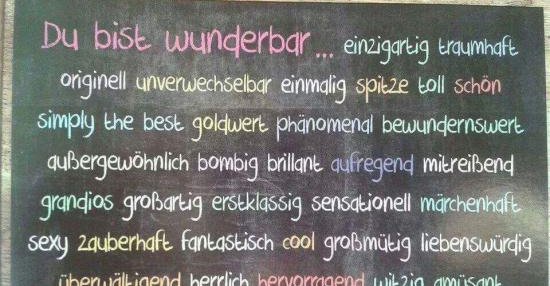 Du bist wunderbar... einzigartig traumhaft
originell unverwechselbar einmalig spitze toll schön
simply the best goldwert phänomenal bewundernswert
außergewöhnlich bombig brillant aufregend mitreißend
grandios großartig erstklassig sensationell märchenhaft
sexy zauberhaft fantastisch cool großmütig liebenswürdig
überwältigend herrlich hervorragend witzig amüsant